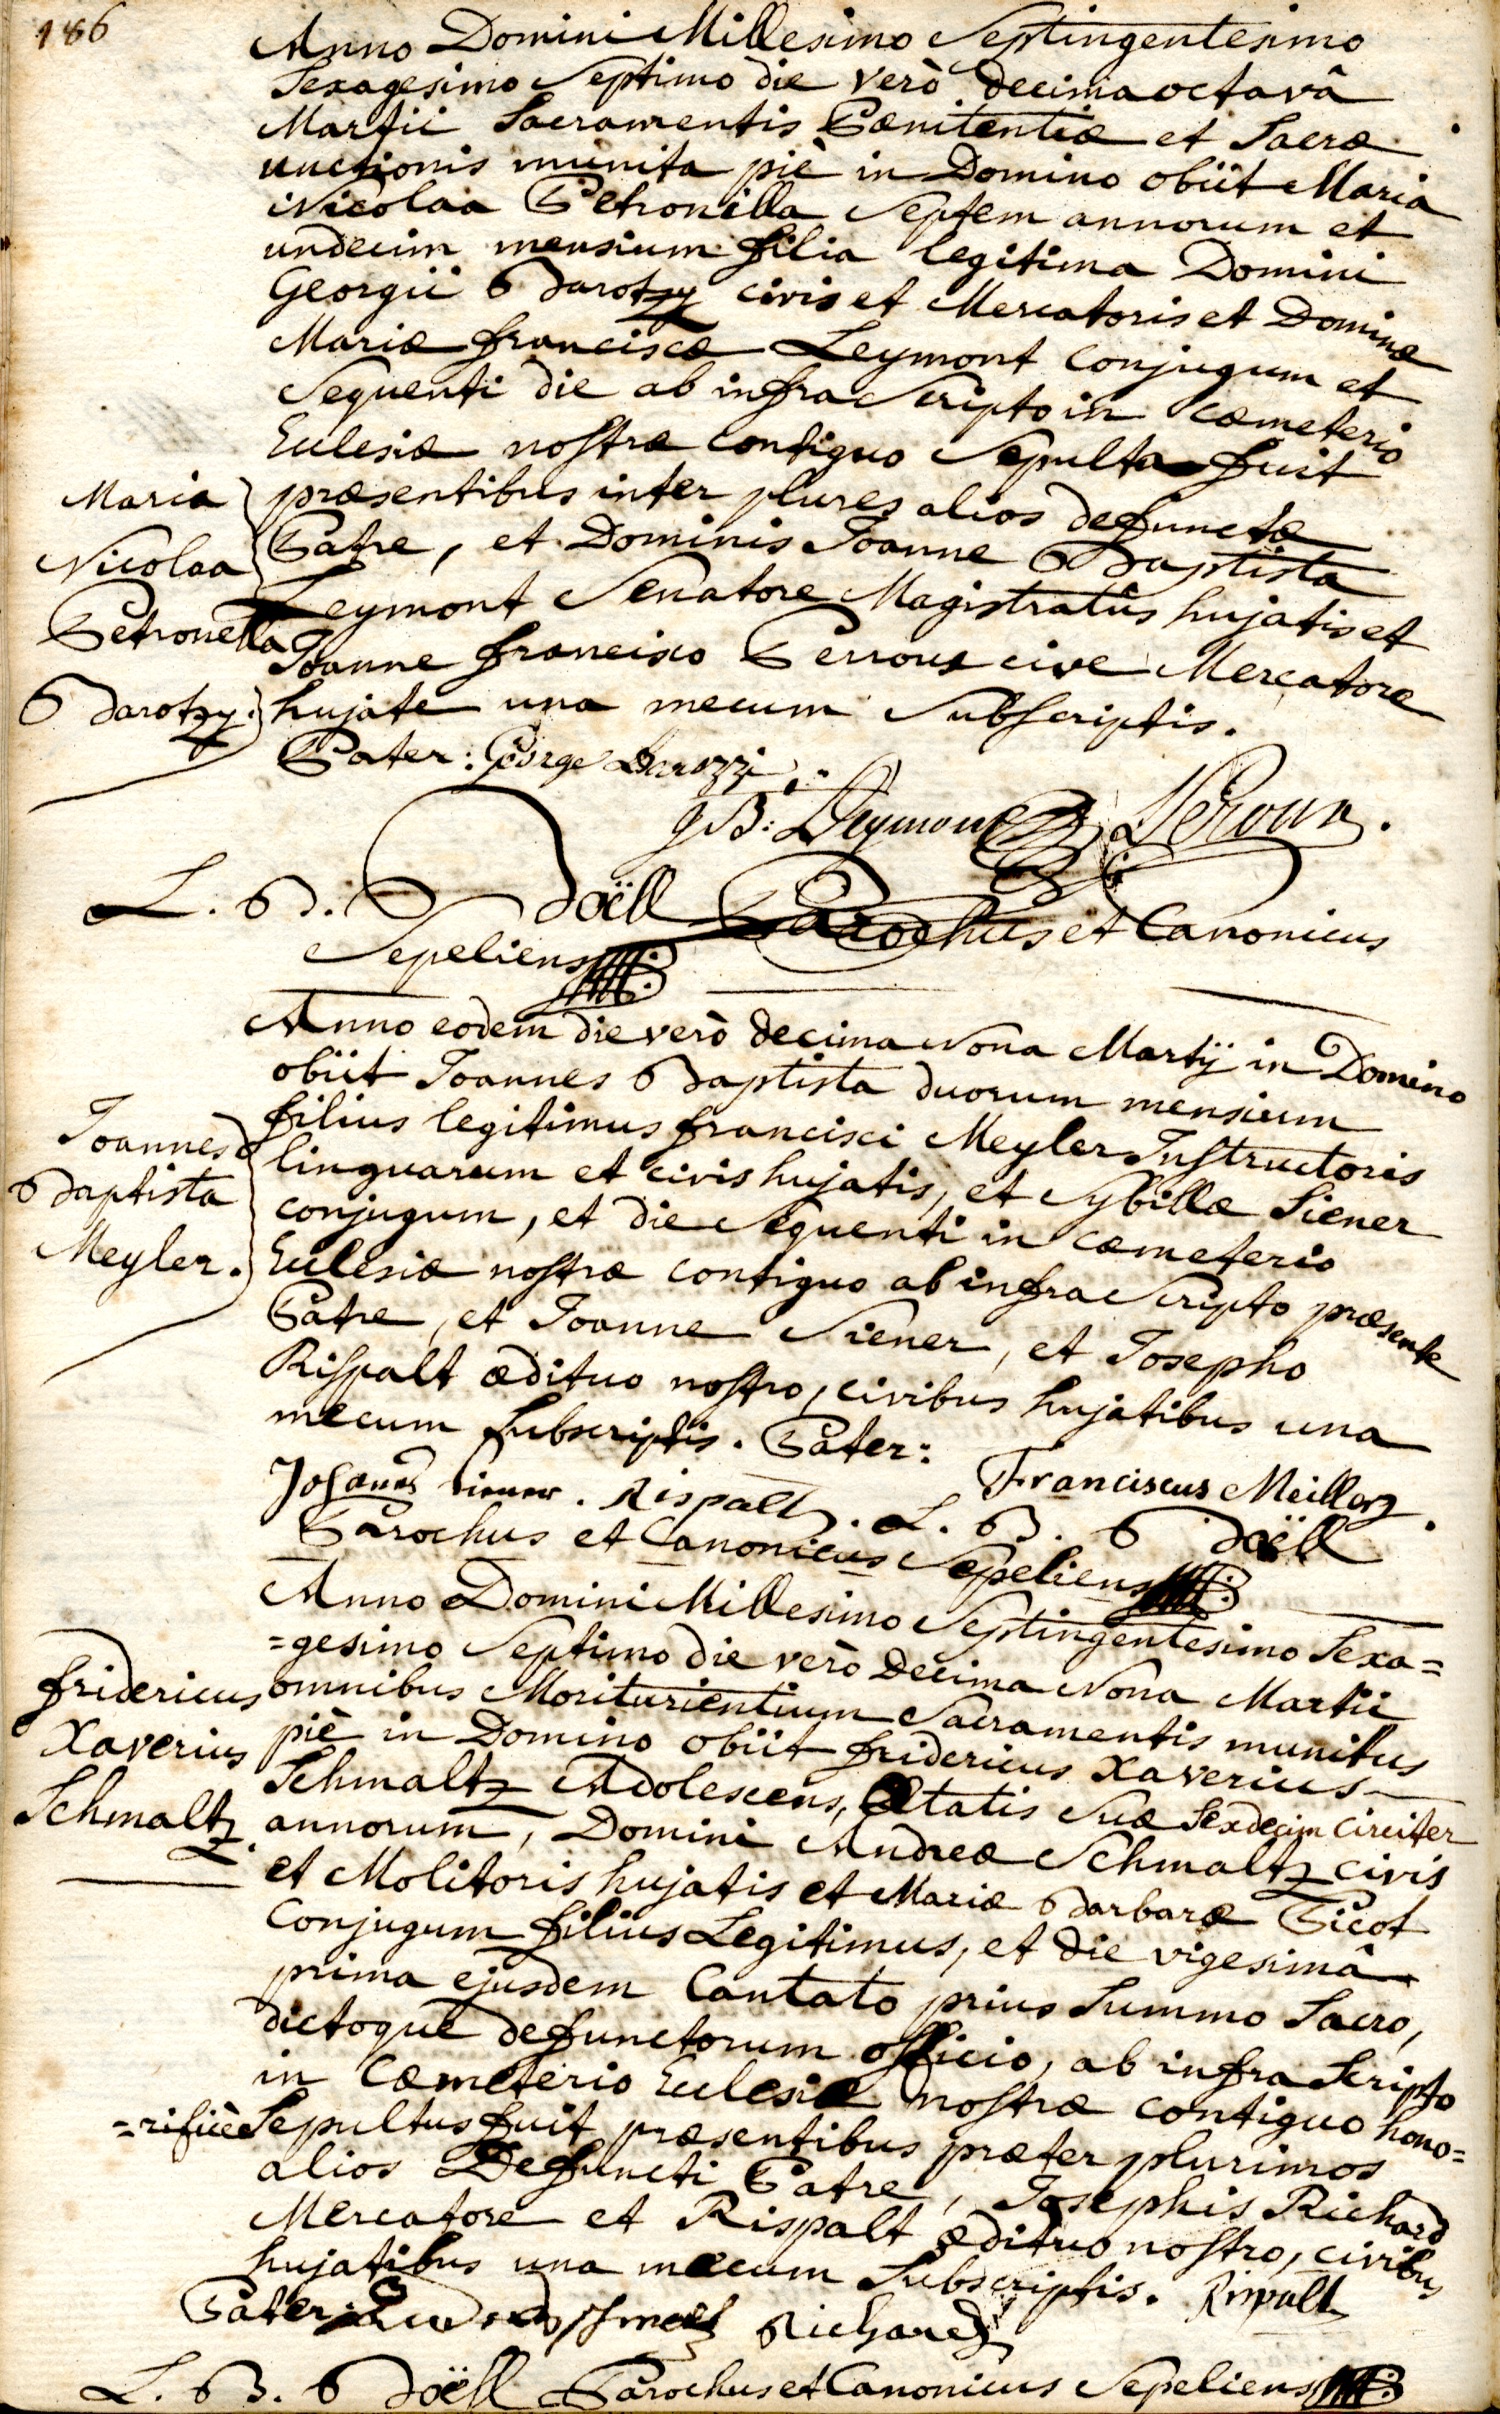 186
Anno Domini Millesimo Septingentesimo
Sexagesimo Septimo die verò decima octavâ
Martii Sacramentis Pœnitentiæ et Sacræ
unctionis munita piè in Domino obiit Maria
Nicolaa Petronilla Septem annorum et
undecim mensium filia legitima Domini
Georgii Barotzy civis et Mercatoris et Dominæ
Mariæ franciscæ Leymont conjugum et
Sequenti die ab infra Scripto in Cæmeterio
Eclesiæ nostræ contiguo Sepulta fuit
præsentibus inter plures alios defunctæ
Patre, et Dominis Joanne Baptista
Leymont Senatore Magistratûs hujatis et
Joanne francisco Perroux cive Mercatore
hujate una mecum Subscriptis.
Maria
Nicolaa
Petronella
Barotzy.
Pater: George Barozzi
J B: Leymont Peroux.
L. B. Boëll Parochus et Canonicus
Sepeliens
Anno eodem die verò decima Nona Martij in Domino
obiit Joannes Baptista duorum mensium
filius legitimus francisci Meyler Instructoris
linguarum et civis hujatis, et Sybillæ Siener
conjugum, et die Sequenti in cæmeterio
Eclesiæ nostræ contiguo ab infra Scripto præsente
Patre, et Joanne Siener, et Josepho
Rispalt ædituo nostro, civibus hujatibus una
mecum Subscriptis. Pater:
Joannes
Baptista
Meyler.
Franciscus Meiller
Johanes Siener. Rispalt. L. B. Boëll
Parochus et Canonicus Sepeliens
Anno Domini Millesimo Septingentesimo Sexa=
=gesimo Septimo die verò Decima Nona Martii
omnibus Moriturientium Sacramentis munitus
piè in Domino obiit fridericus Xaverius
Schmaltz Adolescens, Ætatis Suæ Sexdecim circiter
annorum, Domini Andreæ Schmaltz civis
et Molitoris hujatis et Mariæ Barbaræ Picot
Conjugum filius Legitimus, et die vigesimâ
prima ejusdem Cantato prius Summo Sacro,
dictoque defunctorum officio, ab infra Scripto
in Cæmeterio Eclesiæ nostræ contiguo hono=
=rificè Sepultus fuit præsentibus præter plurimos
alios Defuncti Patre, Josephis Richard
Mercatore et Rispalt ædituo nostro, civibus
hujatibus una mecum Subscriptis. Rispalt
fridericus
Xaverius
Schmaltz.
Pater: Richard
L. B. Boëll Parochus et Canonicus Sepeliens